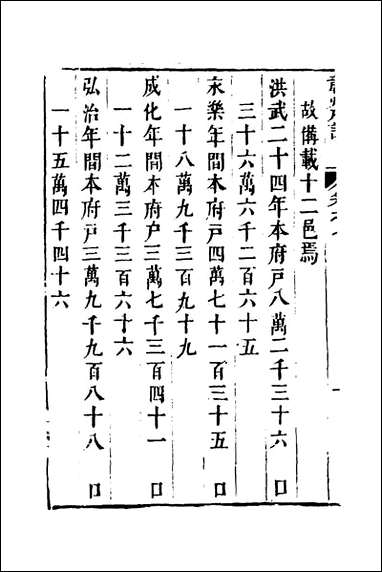 故備載十二邑焉
洪武二十四年本府戸八萬二千三十六口
三十六萬六千二百六十五
永樂年間本府戸四萬七十一百三十五口
一十八萬九千三百九十九
成化年間本府户三萬七千三百四十一口
一十二萬三千三百六十六
弘治年間本府戸三萬九千九百八十八口
一十五萬四千四十六